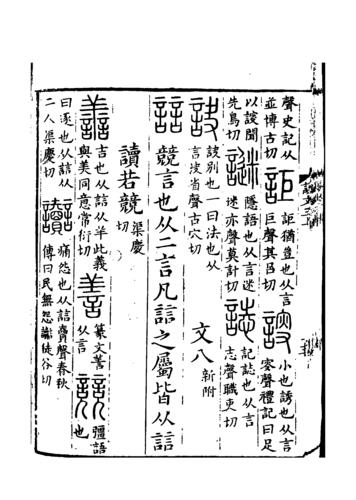 聲史記从並博古切 詎 詎猶豈也从言巨聲其呂切 謏 小也誘也从言叜聲禮記曰足
以謏聞先鳥切 謎 隱語也从言迷迷亦聲莫計切 誌 記誌也从言志聲職吏切
訣 訣別也一曰法也从言決省聲古穴切 文八 新附
誩 競言也从二言凡誩之屬皆从誩
讀若競 渠慶切
譱 吉也从誩从羊此義與美同意常衍切 善 篆文譱从言 競 彊語也
曰逐也从誩从二人渠慶切 讟 痛怨也从誩𧶠聲春秋傳曰民無怨讟徒谷切